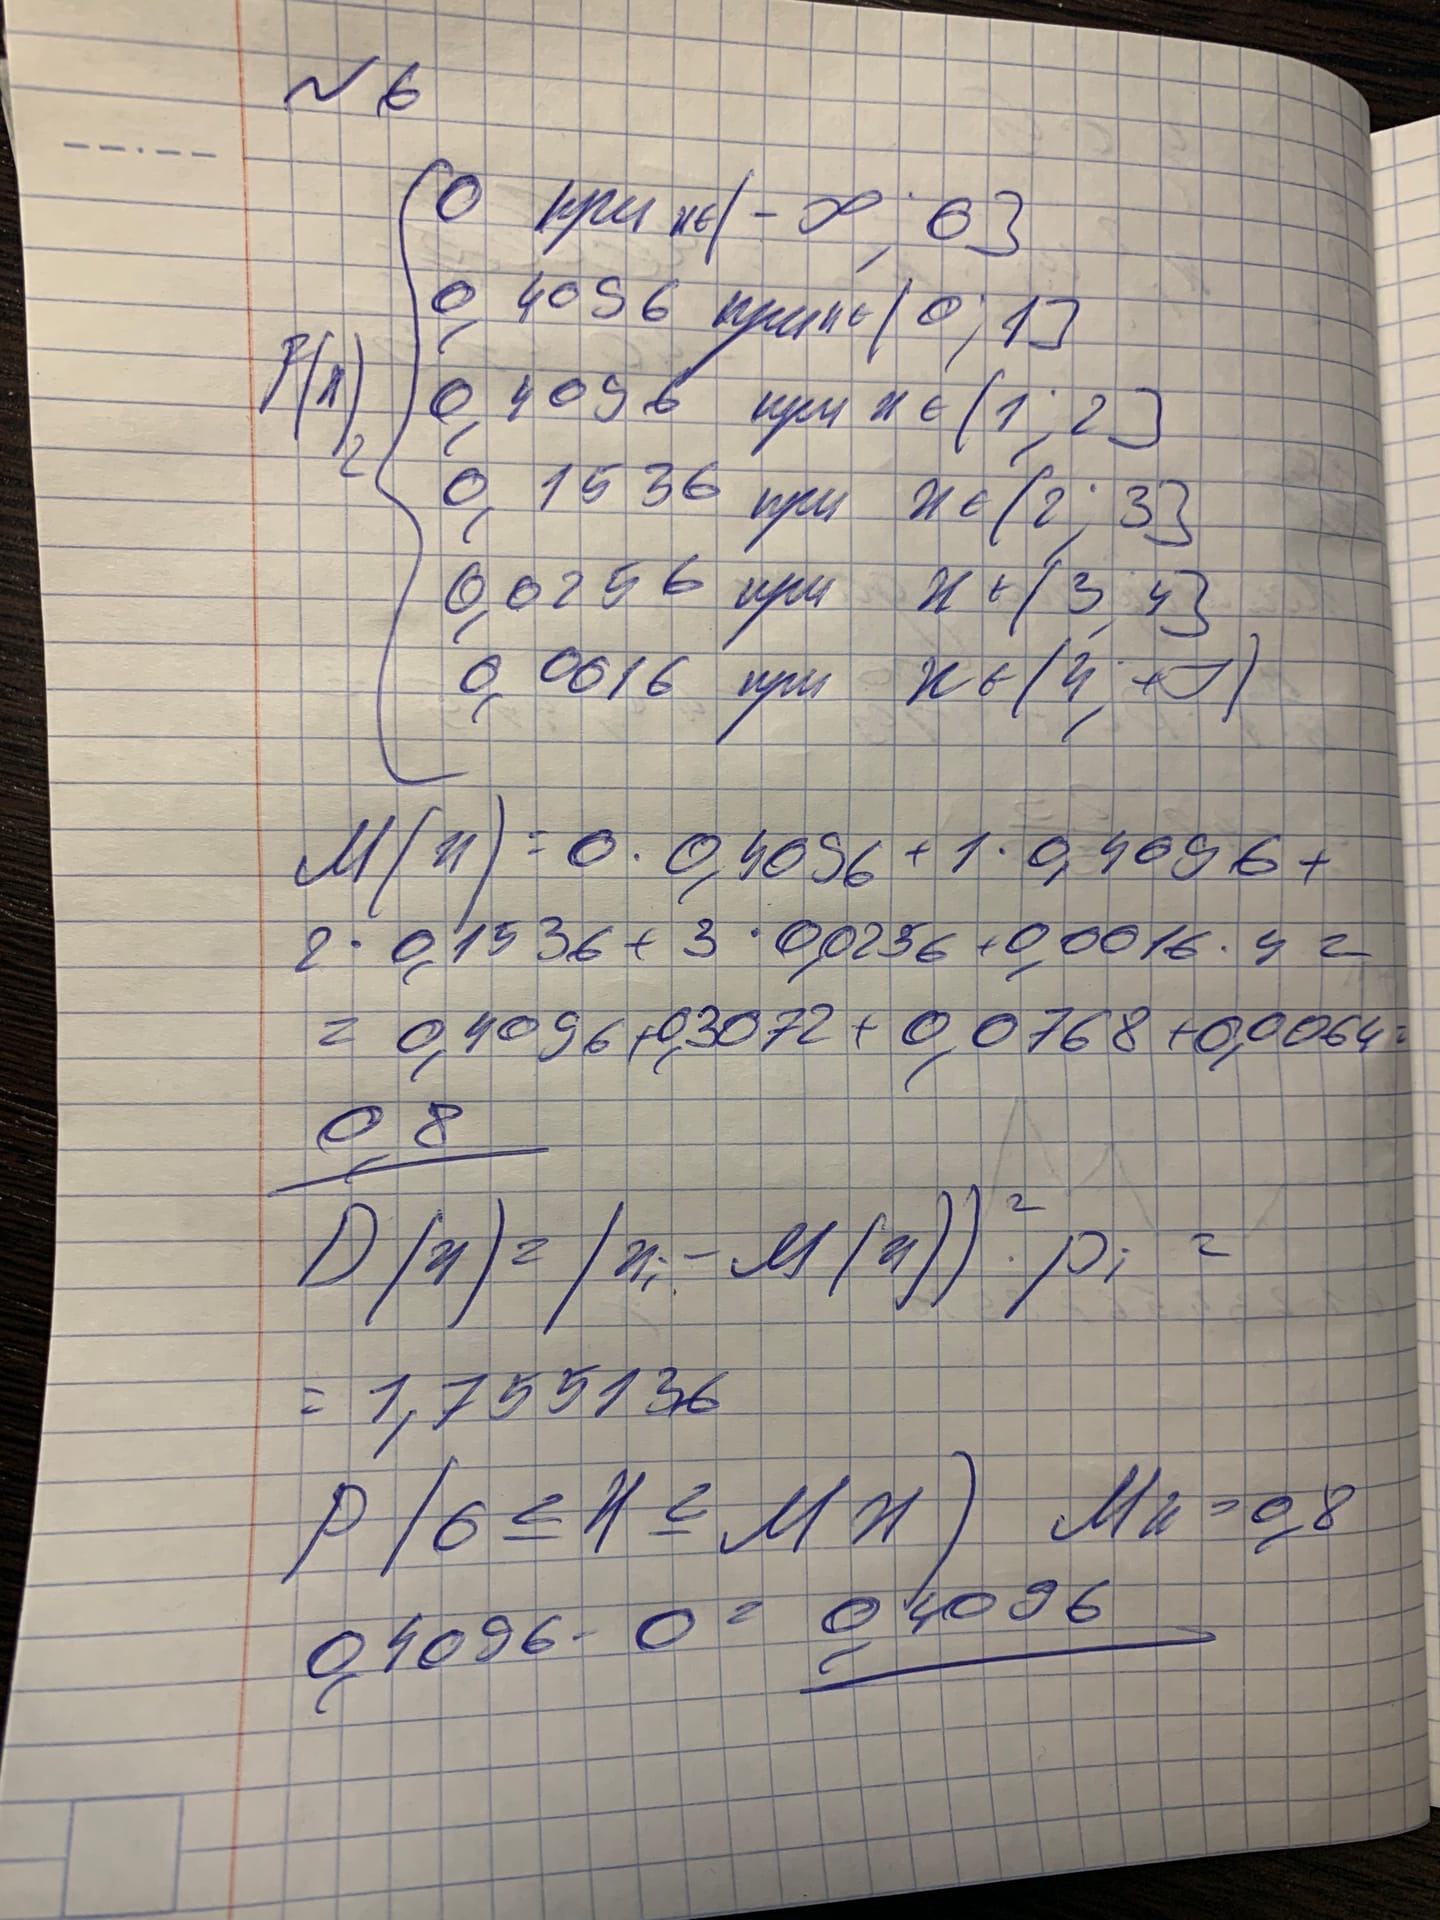 № 6
0 при x ∈ (-∞; 0]
0,4096 при x ∈ (0; 1]
F(x) = 0,4096 при x ∈ (1; 2]
0,1536 при x ∈ (2; 3]
0,0256 при x ∈ (3; 4]
0,0016 при x ∈ (4; +∞)
M(x) = 0 · 0,4096 + 1 · 0,4096 +
2 · 0,1536 + 3 · 0,0256 + 0,0016 · 4 =
= 0,4096 + 0,3072 + 0,0768 + 0,0064 =
0,8
D(x) = (xi - M(x))² · pi =
= 1,755136
P(0 ≤ X ≤ MX) Mx = 0,8
0,4096 - 0 = 0,4096